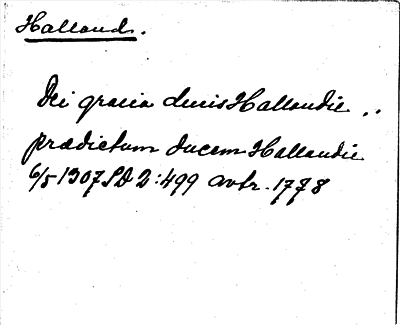 Halland.
Dei gracia ducis Hallandie ..
prædictum ducem Hallandie
6/5 1307 SD 2:499 avtr. 1778